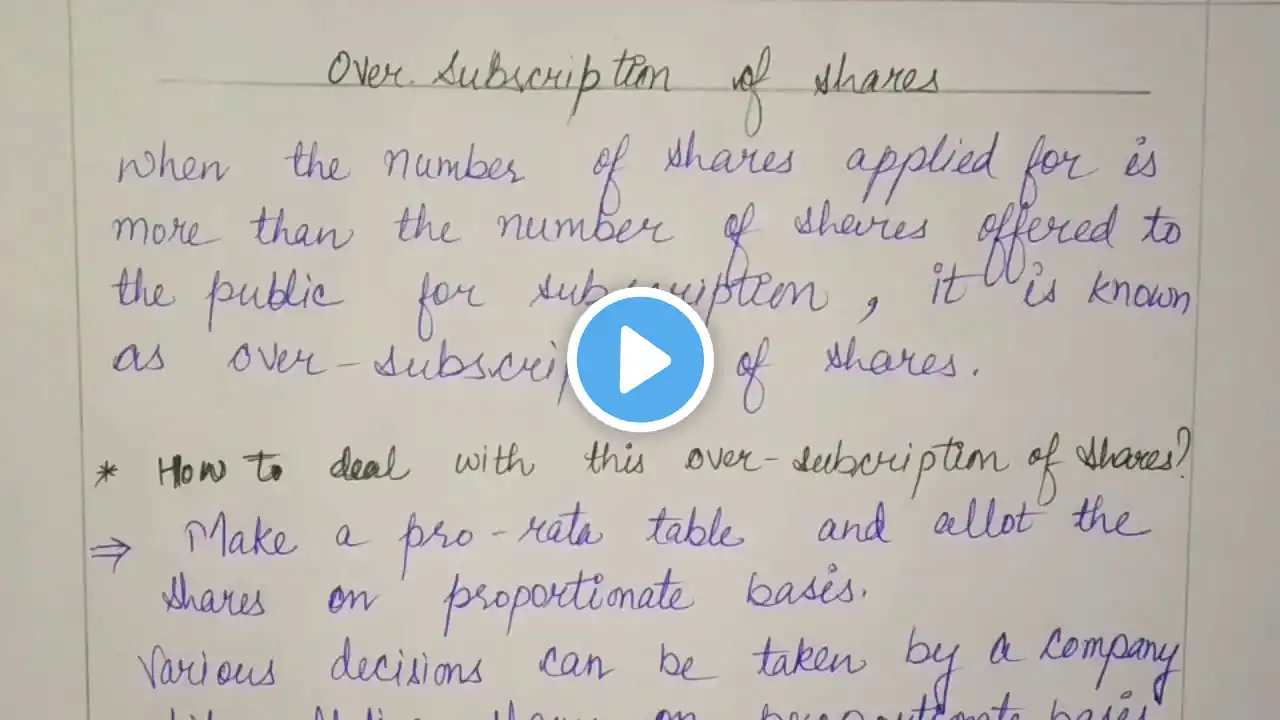 Over Subscription of shares
When the number of shares applied for is
more than the number of shares offered to
the public for subscription, it is known
as over-subscrip of shares.
* How to deal with this over-subcription of shares?
⇒ Make a pro-rata table and allot the
shares on proportionate basis.
Various decisions can be taken by a company
on proportionate basis